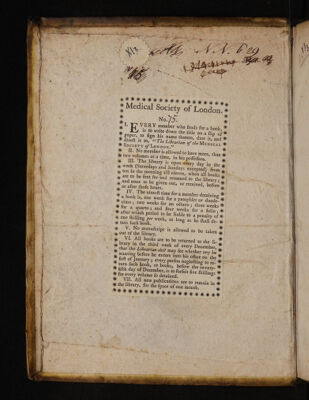 Medical Society of London.
No. 75.
I. EVERY member who sends for a book,
is to write down the title on a slip of
paper, to sign his name thereto, date it, and
direct it to, "The Librarian of the MEDICAL
SOCIETY of LONDON."
II. No member is allowed to have more than
two volumes at a time, in his possession.
III. The library is open every day in the
week (Saturdays and Sundays excepted) from
ten in the morning till eleven, when all books
are to be sent for and returned to the library
and none to be given out, or received, before
or after those hours.
IV. The utmost time for a member detaining
a book is, one week for a pamphlet or duode-
cimo; two weeks for an octavo; three weeks
for a quarto; and four weeks for a folio;
after which period to be liable to a penalty of
one shilling per week, as long as he shall de-
tain such book.
V. No manuscript is allowed to be taken
out of the library.
VI. All books are to be returned to the li-
brary in the third week of every December,
that the Librarian may
maturing before he enters into his office on the
first of January; every person neglecting to re-
turn such book, or books, before the twenty-
fifth day of December, is to forfeit five shillings
for every volume so detained.
VII. All new publications are to remain in
the library, for the space of one month.